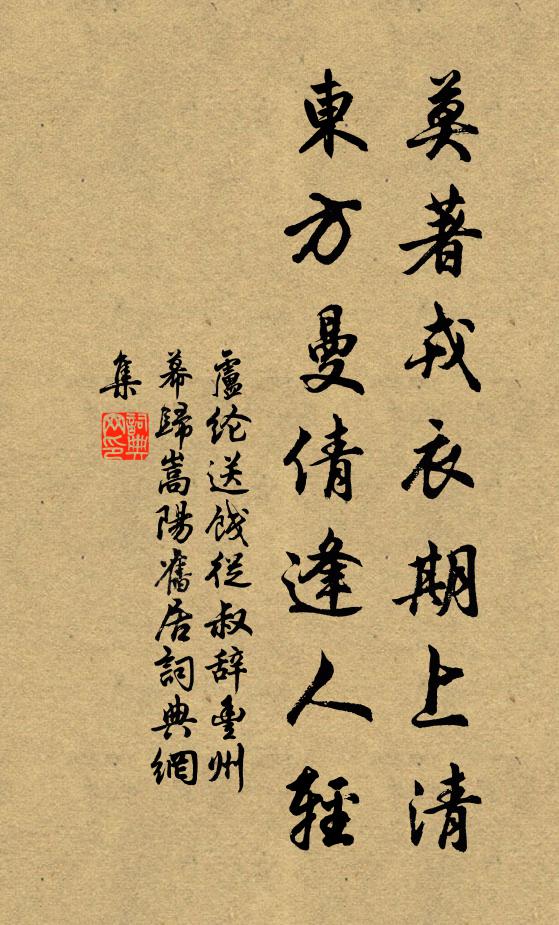 莫著戎衣期上清
東方曼倩逢人輕
盧纶送餞從叔辞豐州
幕歸嵩陽舊居詞典網
集
詞典
网印